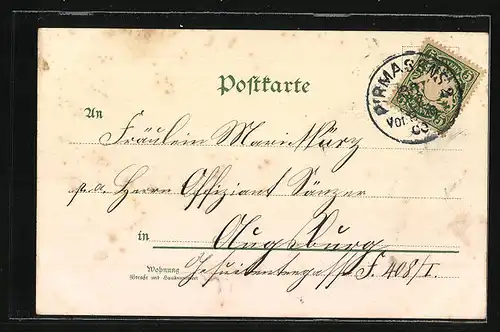 Postkarte
PIRMASENS 2
5
Vor
An
Fräulein Marie Kurz
Herrn Offiziant Sänzer
in
Augsburg
Wohnung
(Straße und Hausnummer)
Jesuitengasse F. 408/I.